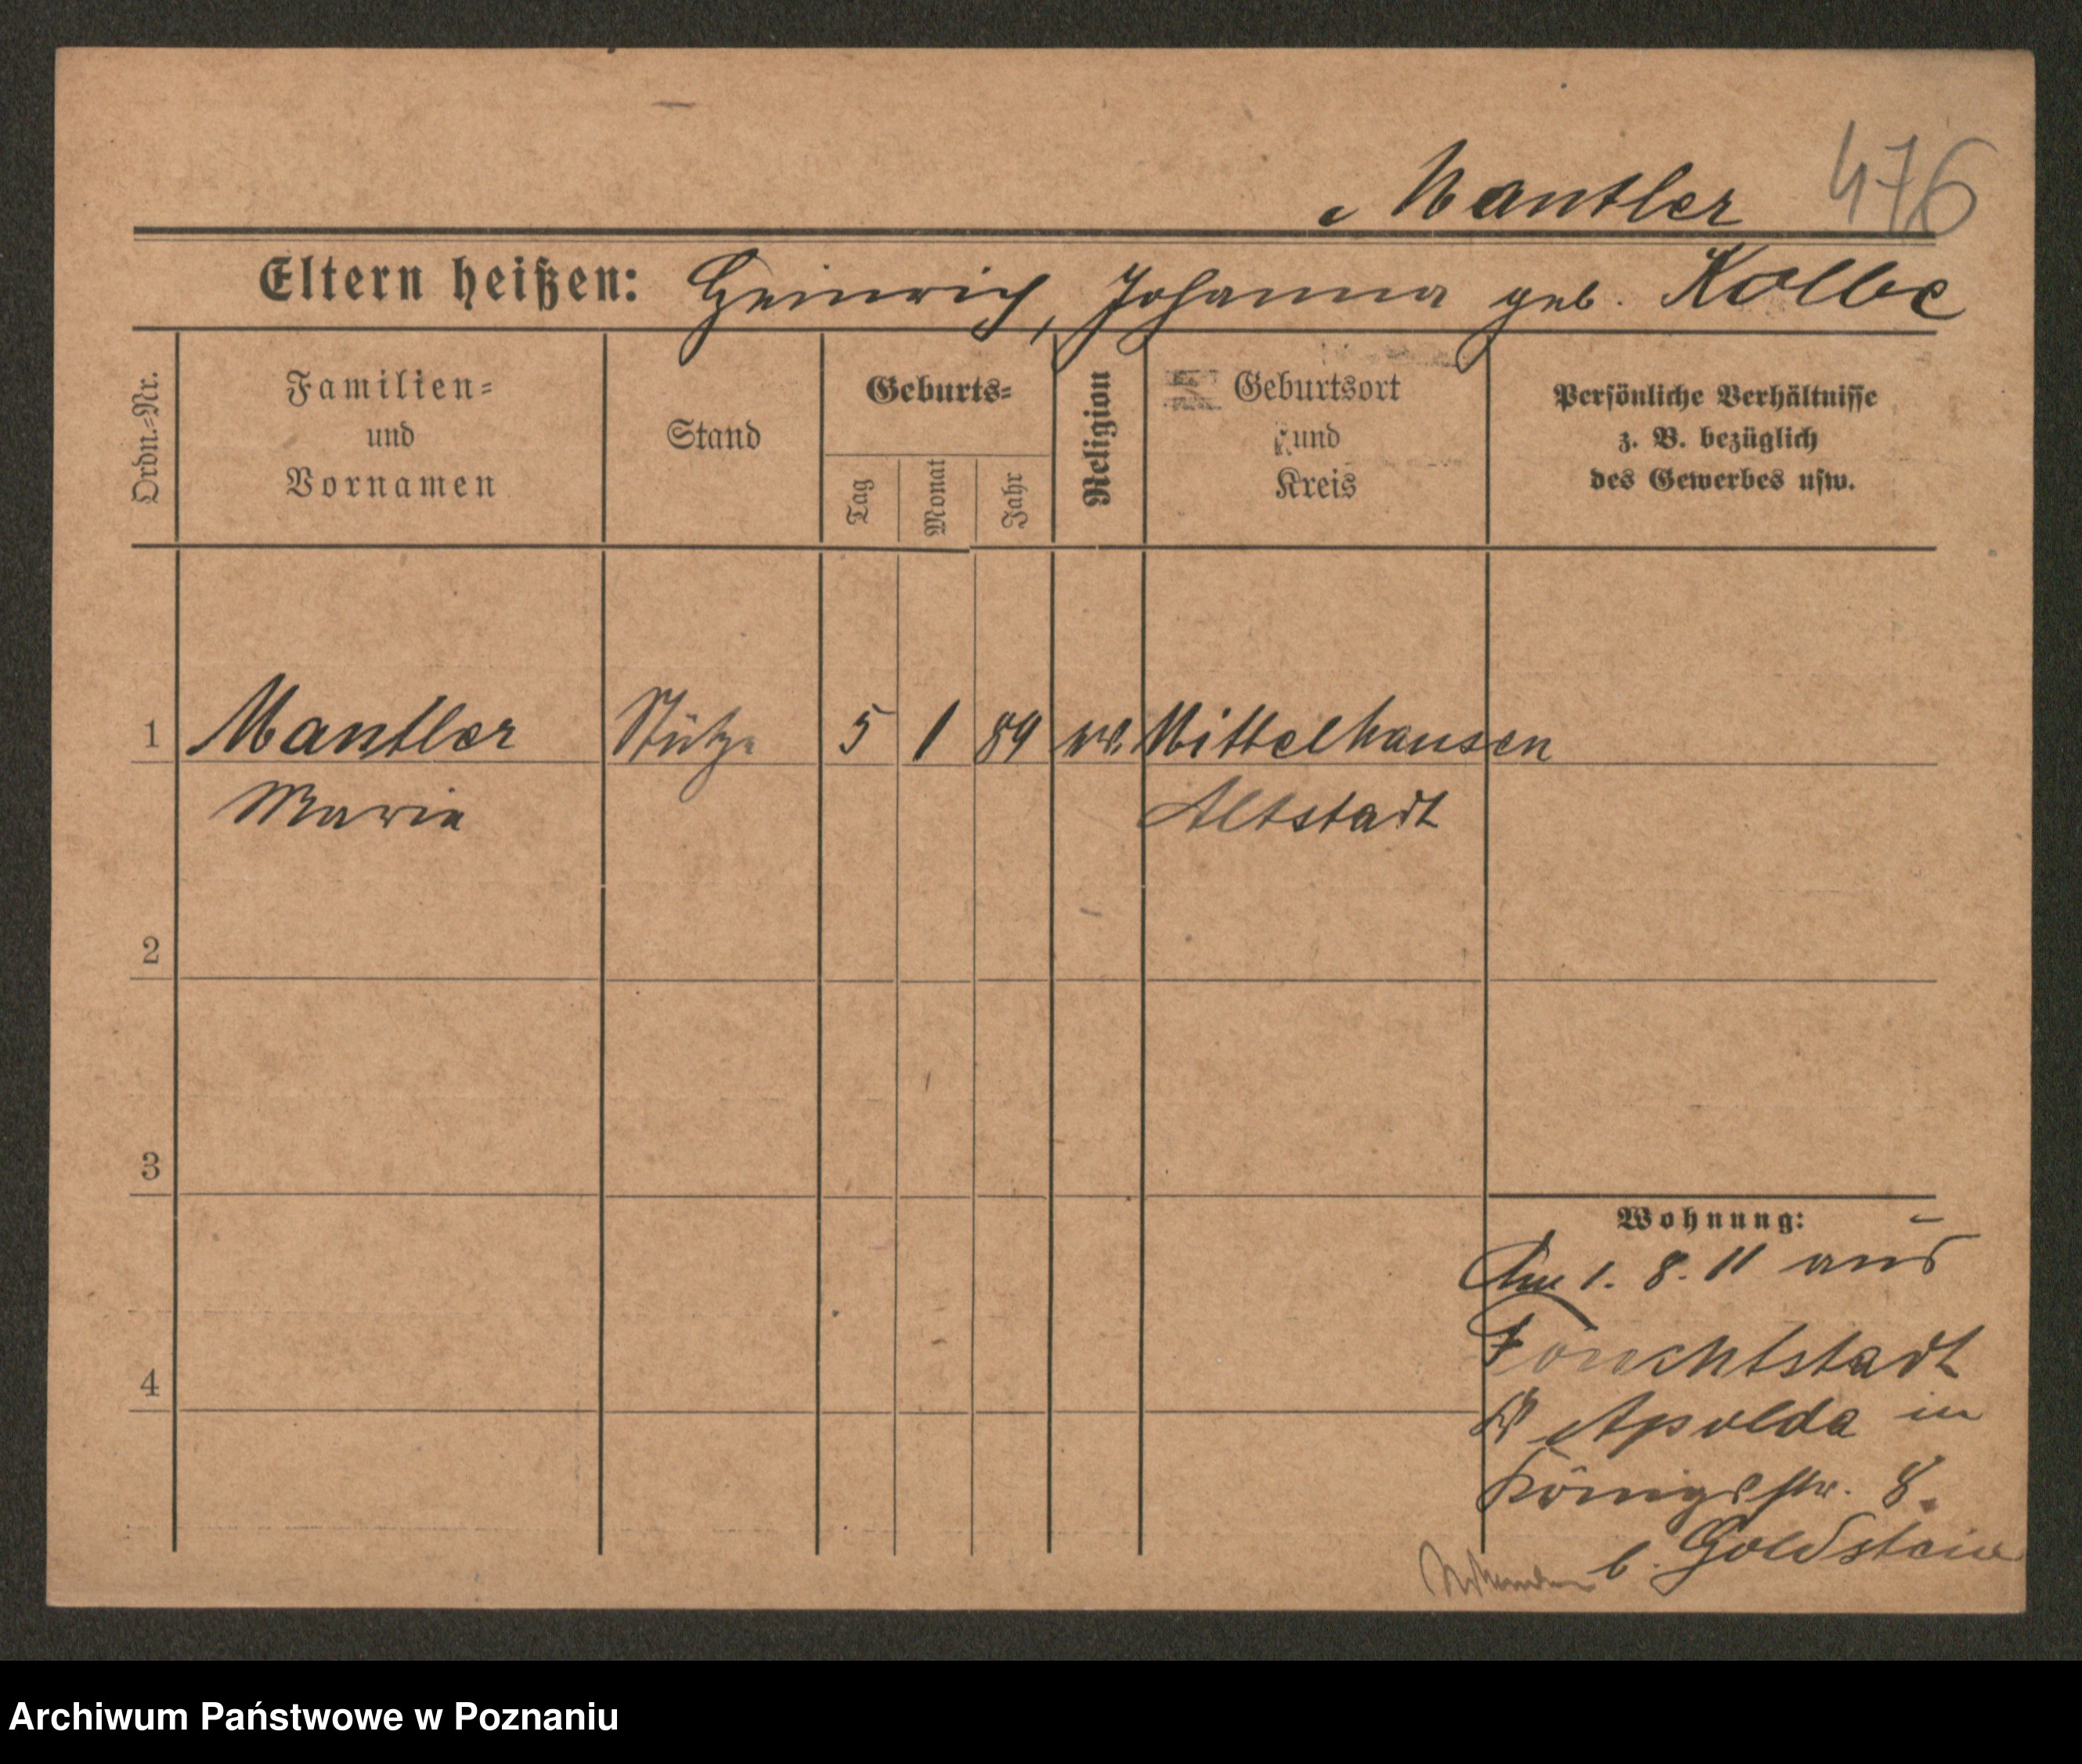 Mantler 476
Eltern heißen: Heinrich, Johanna geb. Kolbe
Ordn.-Nr.
Familien-
und
Vornamen
Stand
Geburts-
Tag
Monat
Jahr
Religion
Geburtsort
und
Kreis
Persönliche Verhältnisse
z. B. bezüglich
des Gewerbes usw.
1 Mantler Stütze 5 1 89 Mittelhausen
Maria Altstadt
2
3
4
Wohnung:
Am 1. 8. 11 aus
Apolda in
Königstr. 8.
b. Goldstein
Archiwum Państwowe w Poznaniu